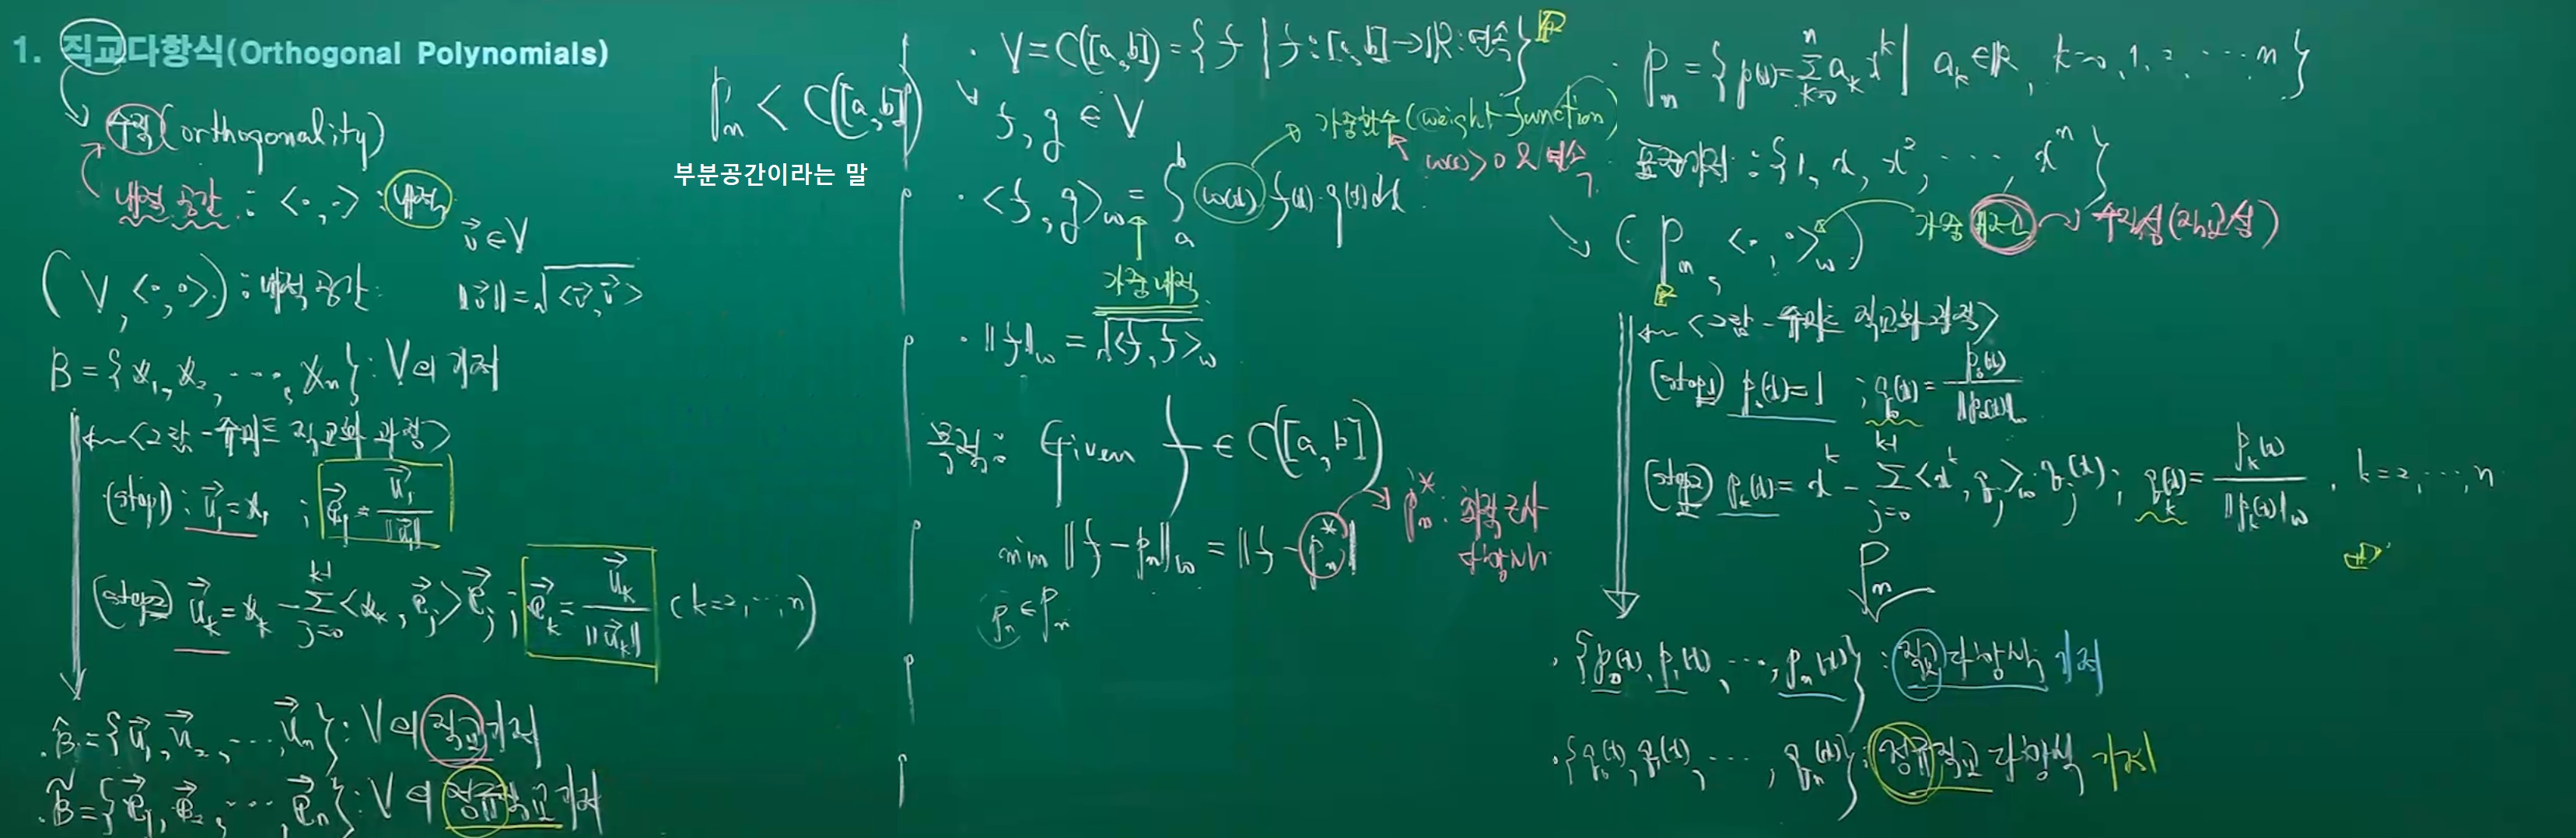 1. 직교다항식(Orthogonal Polynomials)
수직(orthogonality)
내적 공간 : <·,·> : 내적
v⃗ ∈ V
(V, <·,·>) : 내적 공간 ‖v⃗‖ = √<v⃗, v⃗>
B = {x₁, x₂, ⋯, xₙ} : V의 기저
<그람-슈미트 직교화 과정>
(step1) : u⃗₁ = x₁ ; e⃗₁ = u⃗₁/‖u⃗₁‖
(step2) u⃗ₖ = xₖ - Σ_{j=0}^{k-1} <xₖ, e⃗ⱼ> e⃗ⱼ ; e⃗ₖ = u⃗ₖ/‖u⃗ₖ‖ (k=2, ⋯, n)
B̂ = {u⃗₁, u⃗₂, ⋯, u⃗ₙ} : V의 직교기저
B̃ = {e⃗₁, e⃗₂, ⋯, e⃗ₙ} : V의 정규직교기저
Pₙ < C([a,b])
부분공간이라는 말
· V = C([a,b]) = {f | f : [a,b] → ℝ : 연속}
∀ f, g ∈ V
가중함수(weight function)
w(x) > 0 & 연속
· <f, g>_w = ∫_a^b w(x) f(x)·g(x)dx
가중내적
· ‖f‖_w = √<f, f>_w
목적 : Given f ∈ C([a,b])
min ‖f - pₙ‖_w = ‖f - pₙ*‖
pₙ ∈ Pₙ
pₙ* : 최적근사
다항식
· Pₙ = {p(x) = Σ_{k=0}^{n} aₖxᵏ | aₖ ∈ ℝ, k=0, 1, 2, ⋯ n}
· 표준기저 : {1, x, x², ⋯, xⁿ}
(Pₙ, <·,·>_w) 가중 내적 → 수직성(직교성)
<그람-슈미트 직교화 과정>
(step1) p₀(x) = 1 ; q₀(x) = p₀(x)/‖p₀(x)‖_w
(step2) pₖ(x) = xᵏ - Σ_{j=0}^{k-1} <xᵏ, qⱼ>_w qⱼ(x) ; qₖ(x) = pₖ(x)/‖pₖ(x)‖_w, k=2, ⋯, n
Pₙ
· {p₀(x), p₁(x), ⋯, pₙ(x)} : 직교다항식 기저
· {q₀(x), q₁(x), ⋯, qₙ(x)} : 정규직교 다항식 기저